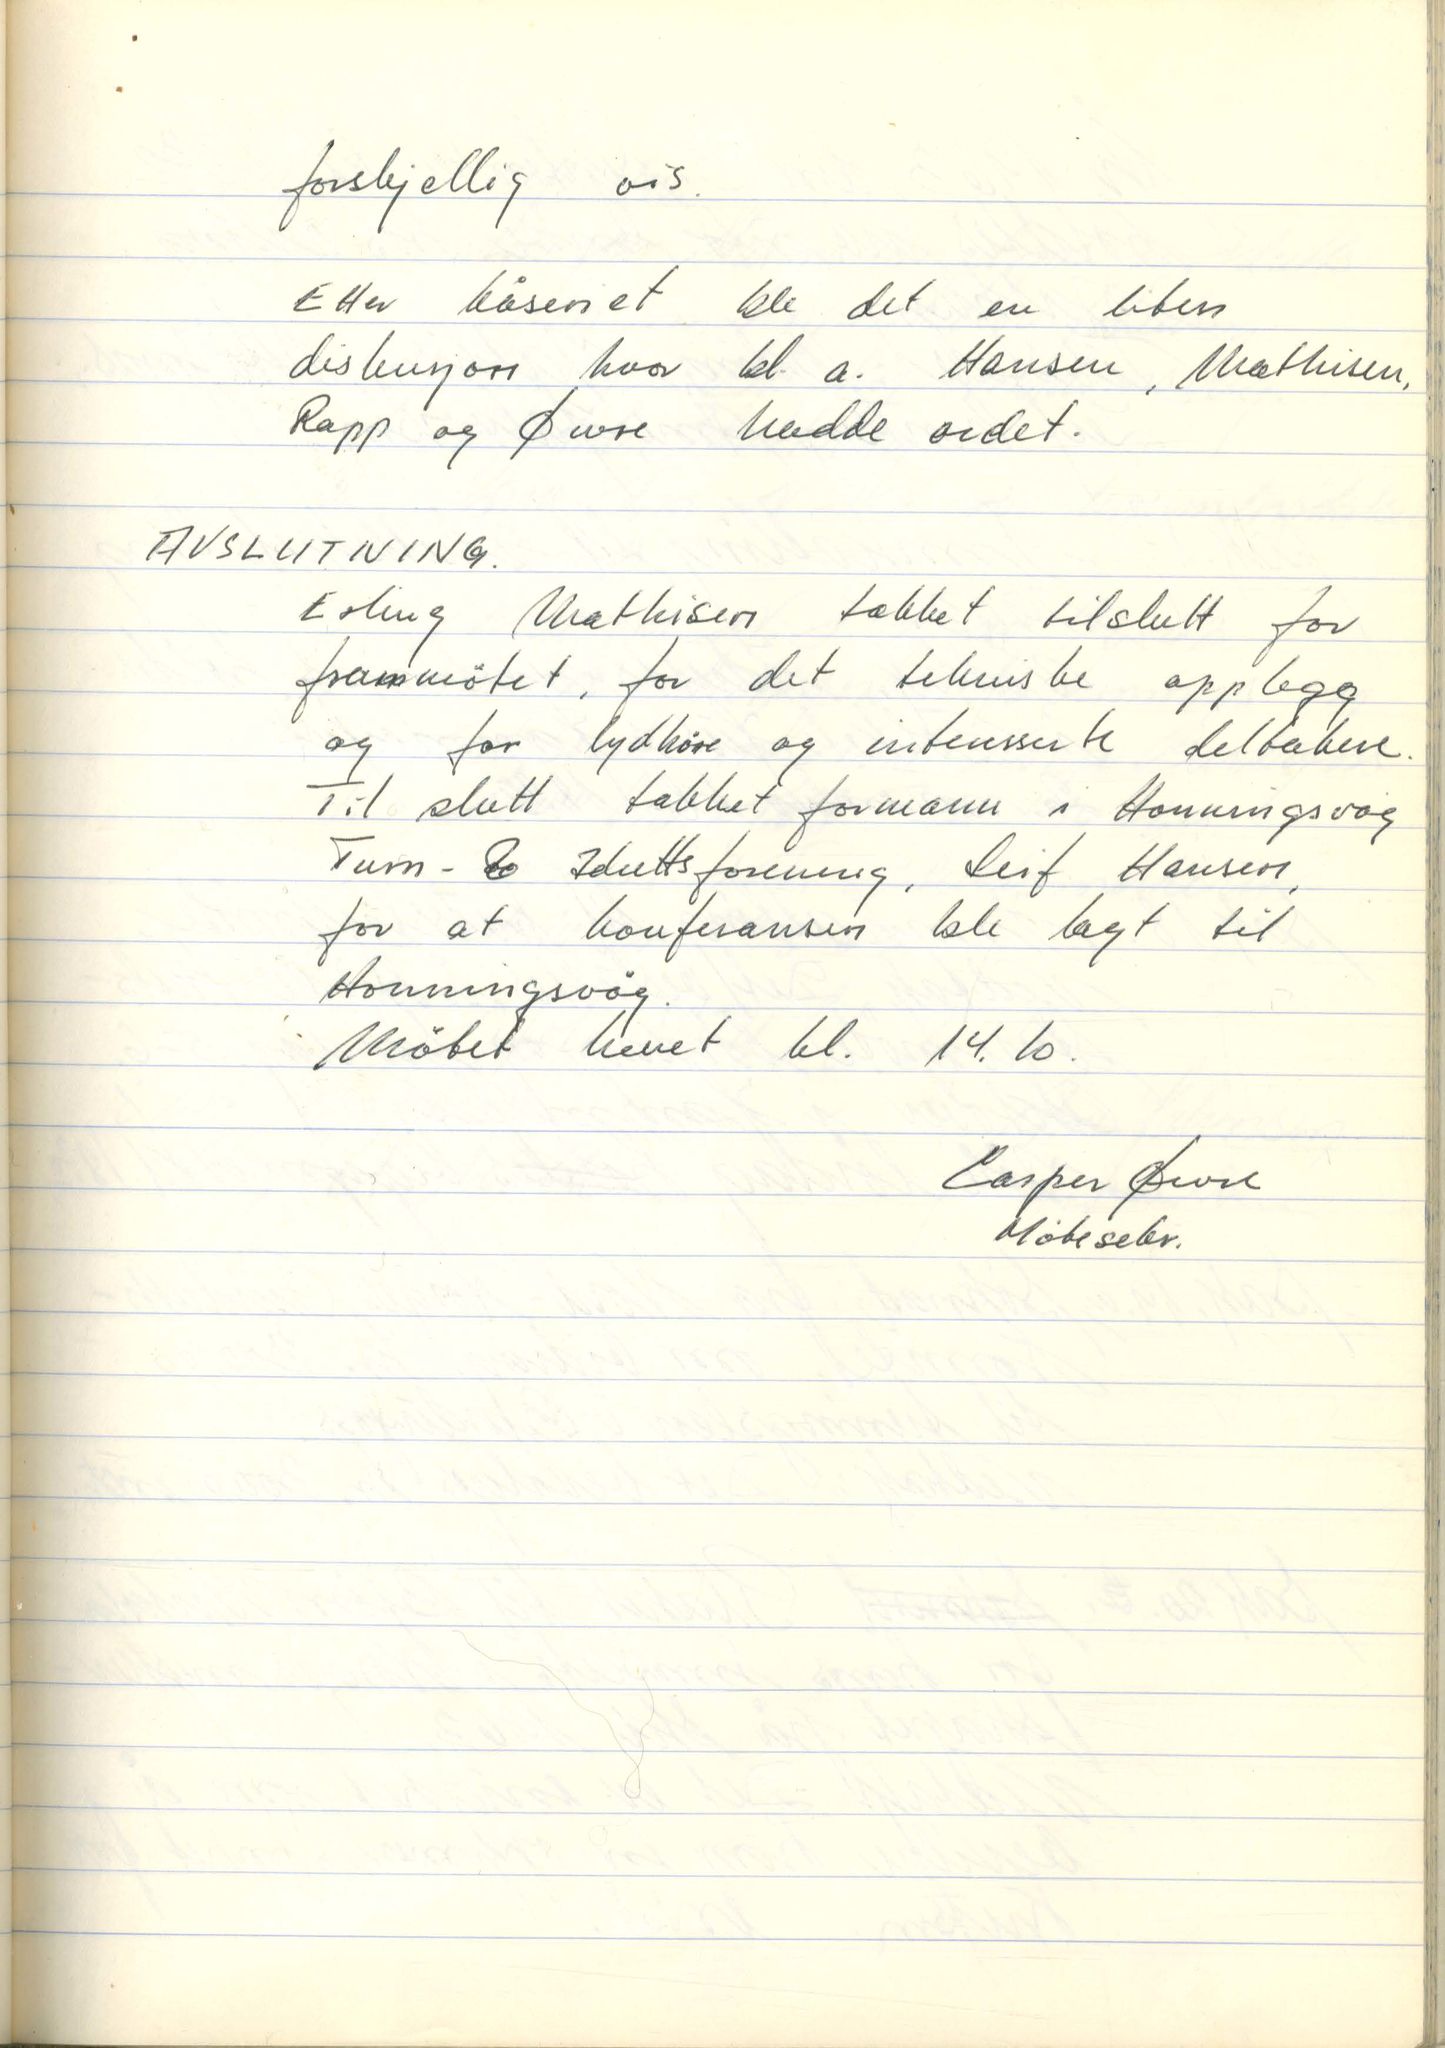 forskjellig vis.
Etter kåseriet ble det en liten
diskusjon hvor bl. a. Hansen, Mathisen,
Rapp og Øwre hadde ordet.
AVSLUTNING.
Erling Mathisen takket tilslutt for
frammötet, for det tekniske opplegg
og for lydhöre og interesserte deltakere.
Til slutt takket formann i Honningsvåg
Turn- & Idrettsforening, Leif Hansen,
for at konferansen ble lagt til
Honningsvåg.
Mötet hevet kl. 14.10.
Casper Øwre
Mötesekr.